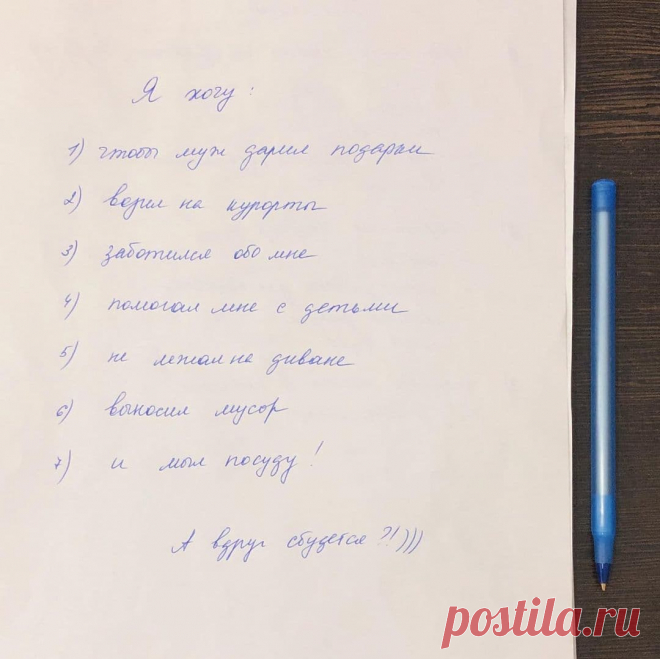 Я хочу:
1) чтобы муж дарил подарки
2) возил на курорты
3) заботился обо мне
4) помогал мне с детьми
5) не лежал на диване
6) выносил мусор
7) и мыл посуду!
А вдруг сбудется?!)))
postila.ru